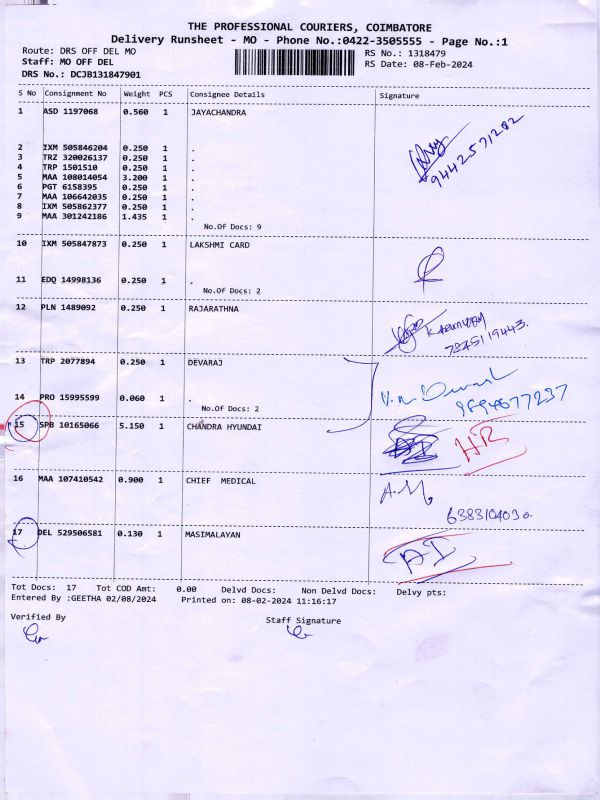 THE PROFESSIONAL COURIERS, COIMBATORE
Delivery Runsheet - MO - Phone No.:0422-3505555 - Page No.:1
Route: DRS OFF DEL MO RS No.: 1318479
Staff: MO OFF DEL RS Date: 08-Feb-2024
DRS No.: DCJB131847901
S No Consignment No Weight PCS Consignee Details Signature
1 ASD 1197068 0.560 1 JAYACHANDRA
9442571282
2 IXM 505846204 0.250 1 .
3 TRZ 320026137 0.250 1 .
4 TRP 1501510 0.250 1 .
5 MAA 108014054 3.200 1 .
6 PGT 6158395 0.250 1 .
7 MAA 106642035 0.250 1 .
8 IXM 505862377 0.250 1 .
9 MAA 301242186 1.435 1 .
No.Of Docs: 9
10 IXM 505847873 0.250 1 LAKSHMI CARD
11 EDQ 14998136 0.250 1 .
No.Of Docs: 2
12 PLN 1489092 0.250 1 RAJARATHNA
7845119443.
13 TRP 2077894 0.250 1 DEVARAJ
14 PRO 15995599 0.060 1 .
9894677237
No.Of Docs: 2
15 SPB 10165066 5.150 1 CHANDRA HYUNDAI
HR
16 MAA 107410542 0.900 1 CHIEF MEDICAL
A.M
6383104030.
17 DEL 529506581 0.130 1 MASIMALAYAN
AI
Tot Docs: 17 Tot COD Amt: 0.00 Delvd Docs: Non Delvd Docs: Delvy pts:
Entered By :GEETHA 02/08/2024 Printed on: 08-02-2024 11:16:17
Verified By Staff Signature